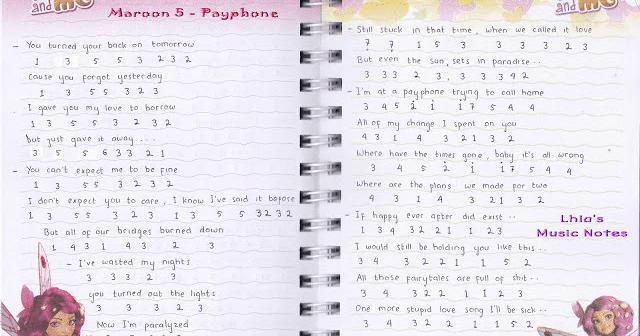 Maroon 5 - Payphone
- You turned your back on tomorrow
1 3 5 5 3 2 3 2
Cause you forgot yesterday
1 3 5 5 3 2 3
I gave you my love to borrow
1 3 5 5 3 2 3 2
but just gave it away....
3 5 5 6 3 3 2 1
- You can't expect me to be fine
1 3 5 5 3 2 3 2
I don't expect you to care, I know I've said it before
1 3 5 5 3 2 3 1 3 5 5 3 2 3 2
But all of our bridges burned down
1 4 3 1 4 3 2 3
- I've wasted my nights
3 3 3 2 3
you turned out the lights
3 3 3 2 3
Now I'm paralyzed
and me
- Still stuck in that time, when we called it love
7 7 1 5 3 3 3 3 2 3
But even the sun, sets in paradise..
3 3 3 2 3, 3 3 3 4 2
- I'm at a payphone trying to call home
3 4 5 2 1 1 7 5 4 4
All of my change I spent on you
4 3 1 4 3 2 1 3 2
Where have the times gone, baby it's all wrong
3 4 5 2 1 1 7 5 4 4
Where are the plans we made for two
4 3 1 4 3 2 1 3 2
- If happy ever after did exist..
1 3 4 3 2 2 1 1 2 3
I would still be holding you like this..
3 4 3 2 2 1 1 5 2
All those fairytales are full of shit..
3 4 3 2 2 1 1 2 3
One more stupid love song I'll be sick..
3 4 3 2 2 1 1 5 2
Lhia's
Music Notes